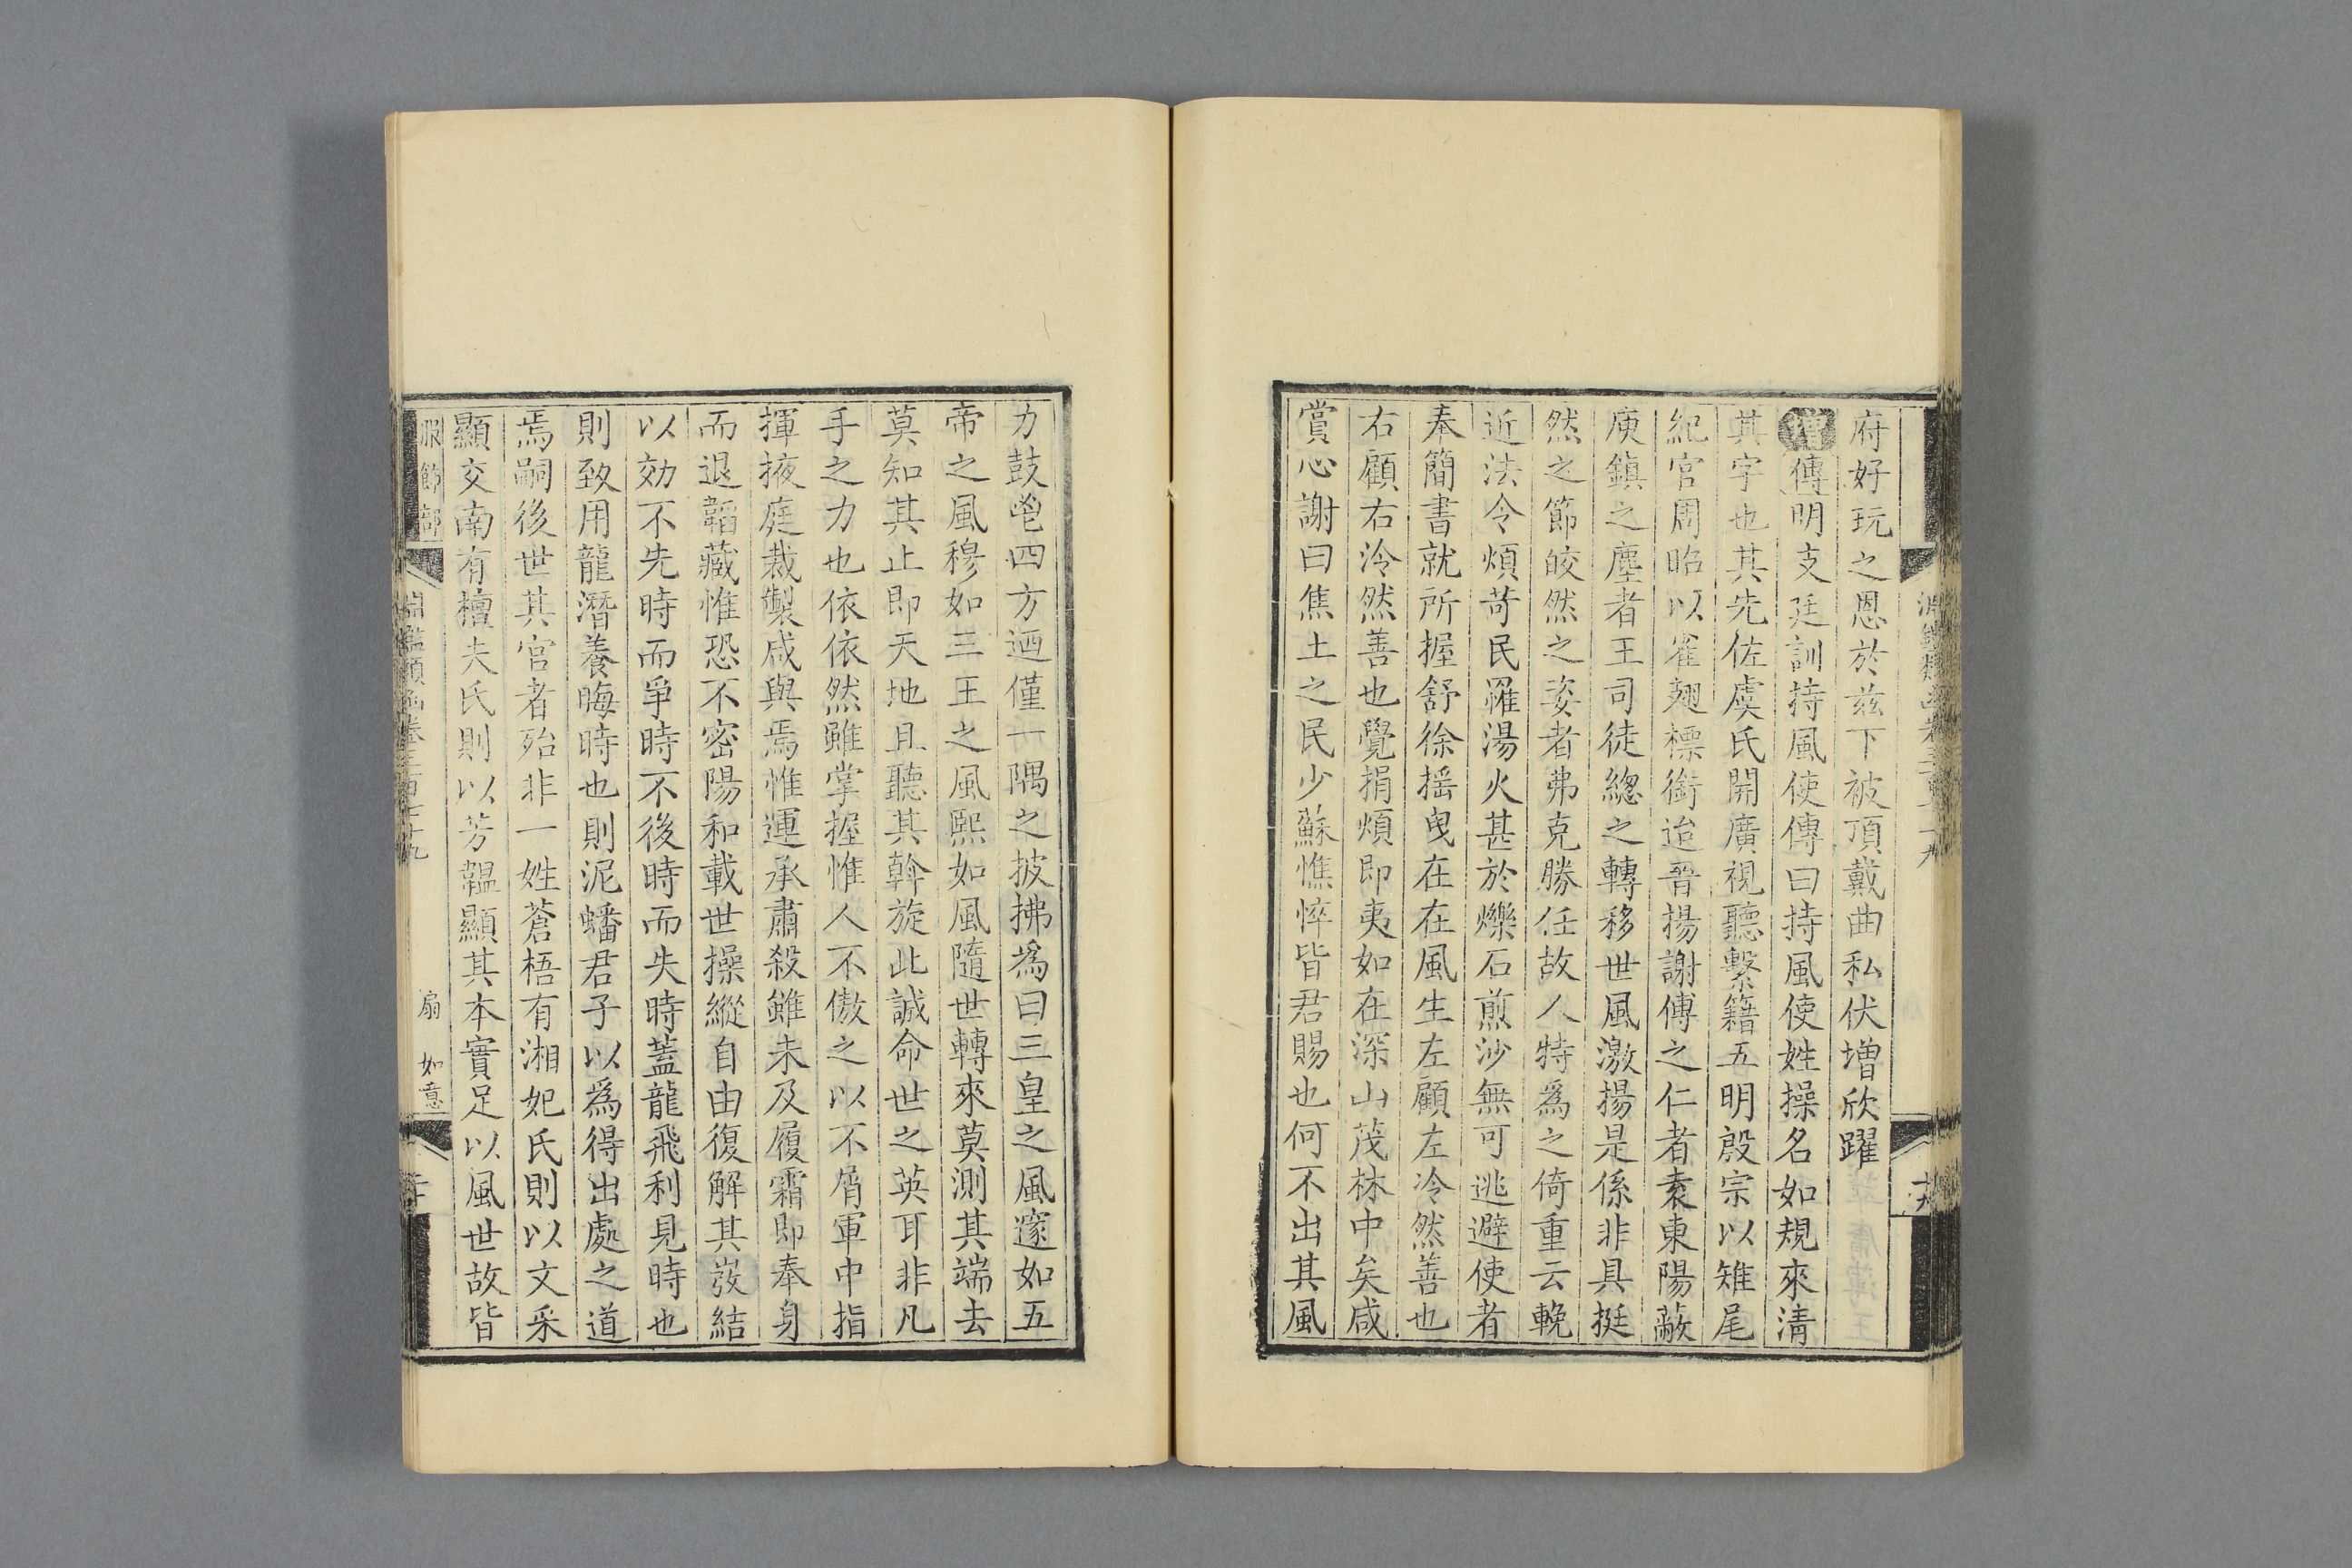 府好玩之恩於茲下被頂戴曲私伏增欣躍
增傳明支廷訓持風使傳曰持風使姓操名如規來清
其字也其先佐虞氏開廣視聽繫籍五明殷宗以雉尾
紀官周昭以雀翅標銜迨晉揚謝傅之仁者袁東陽蔽
庾鎮之塵者王司徒總之轉移世風激揚是係非具挺
然之節皎然之姿者弗克勝任故人特爲之倚重云輓
近法令煩苛民罹湯火甚於爍石煎沙無可逃避使者
奉簡書就所握舒徐搖曳在在風生左顧左冷然善也
右顧右泠然善也覺捐煩即夷如在深山茂林中矣咸
賞心謝曰焦土之民少蘇憔悴皆君賜也何不出其風
力鼓鬯四方迺僅一隅之披拂爲曰三皇之風邃如五
帝之風穆如三王之風熙如風隨世轉來莫測其端去
莫知其止即天地且聽其斡旋此誠命世之英耳非凡
手之力也依依然雖掌握惟人不傲之以不屑軍中指
揮掖庭裁製咸與焉惟運承肅殺雖未及履霜即奉身
而退韜藏惟恐不密陽和載世操縱自由復解其嵏結
以効不先時而爭時不後時而失時蓋龍飛利見時也
則致用龍潛養晦時也則泥蟠君子以爲得出處之道
焉嗣後世其官者殆非一姓蒼梧有湘妃氏則以文采
顯交南有檀夫氏則以芳韞顯其本實足以風世故皆
服飾部
淵鑑類函卷三百七十九
扇 如意
二十